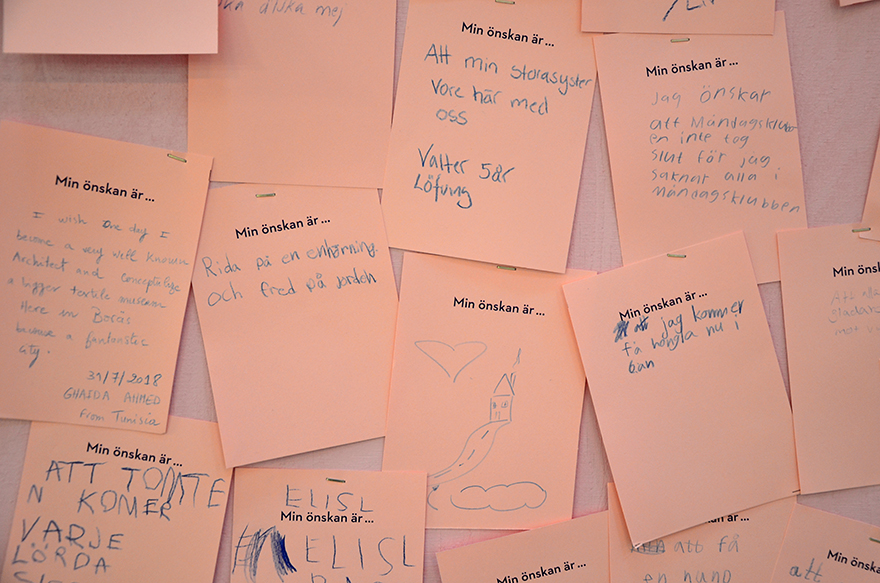 älska mej
Min önskan är...
Att min storasyster
Vore här med
oss
Valter 5år
Löfving
Min önskan är...
jag önskar
att Måndagsklubb
en inte tog
slut för jag
saknar alla i
måndagsklubben
Min önskan är...
I wish one day I
become a very well known
Architect and
a bigger textile museum
Here in Borås
become a fantanstic
city.
31/7/2018
GHAIDA AHMED
From Tunisia
Min önskan är...
Rida på en enhörning.
och fred på jorden
Min önskan är...
Min önskan är...
att jag kommer
få hångla nu i
Min önskan
Att
Min önskan är...
ATT TOMTE
N KOMER
VARJE
LÖRDA
ELISL
Min önskan är...
ELISL
Min önskan är...
önskan är...
att få
en hund
Min önskan
att